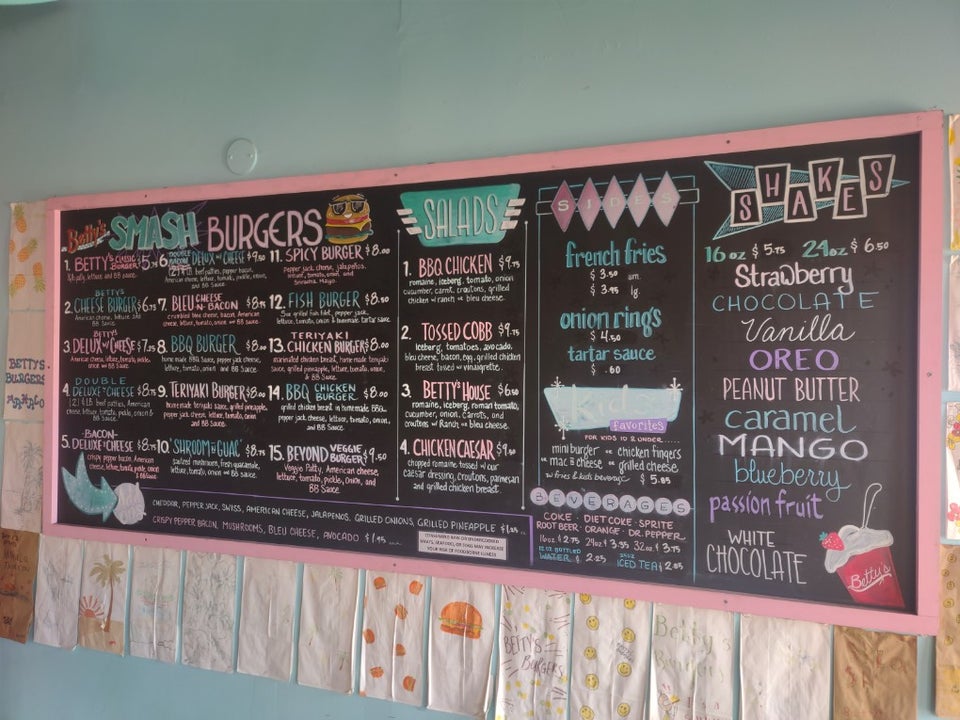 Betty's SMASH BURGERS
1. BETTY'S CLASSIC BURGER
lettuce, and BB sauce.
2. BETTY'S CHEESE BURGER $6.75
American cheese, lettuce and
BB Sauce
3. BETTY'S DELUX W/ CHEESE $7.25
American cheese, lettuce, tomato, pickle,
BB Sauce
4. DOUBLE DELUXE W/ CHEESE $8.75
beef patties, American
cheese, lettuce, tomato, pickle, onion &
BB Sauce
5. BACON DELUXE W/ CHEESE $8.75
crispy pepper bacon, American
cheese, lettuce, tomato, pickle, onion
and BB Sauce
6. DOUBLE BACON DELUX W/ CHEESE $9.50
beef patties, pepper bacon,
American cheese, lettuce, tomato, pickle, onion,
and BB Sauce
7. BLEU CHEESE N- BACON $8.75
crumbled bleu cheese, bacon, American
cheese, lettuce, tomato, onion and BB Sauce
8. BBQ BURGER $8.00
home made BBQ Sauce, pepper jack cheese,
lettuce, tomato, onion and BB Sauce.
9. TERIYAKI BURGER $8.00
homemade teriyaki sauce, grilled pineapple,
pepper jack cheese, lettuce, tomato, onion
and BB Sauce
10. 'SHROOM N' GUAC' $8.75
sauteed mushroom, fresh guacamole,
lettuce, tomato, onion BB Sauce.
11. SPICY BURGER $8.00
pepper jack cheese, jalapeños,
lettuce, tomato, onion, and
Sriracha Mayo.
12. FISH BURGER $8.50
grilled fish filet, pepper jack,
lettuce, tomato, onion & homemade tartar sauce
13. TERIYAKI CHICKEN BURGER $8.00
marinated chicken breast, home made teriyaki
sauce, grilled pineapple, lettuce, tomato, onion,
& BB Sauce
14. BBQ CHICKEN BURGER $8.00
grilled chicken breast in homemade BBQ
pepper jack cheese, lettuce, tomato, onion,
and BB Sauce
15. BEYOND VEGGIE BURGER $9.50
Veggie Patty, American cheese,
lettuce, tomato, pickle, onion, and
BB Sauce
CHEDDAR, PEPPER JACK, SWISS, AMERICAN CHEESE, JALAPENOS, GRILLED ONIONS, GRILLED PINEAPPLE $1.25
CRISPY PEPPER BACON, MUSHROOMS, BLEU CHEESE, AVOCADO $1.95
CONSUMING RAW OR UNDERCOOKED
MEATS, SEAFOOD, OR EGGS MAY INCREASE
YOUR RISK OF FOODBORNE ILLNESS
SALADS
1. BBQ CHICKEN $9.75
iceberg, tomato, onion
cucumber, carrot, croutons, grilled
chicken w/ ranch or bleu cheese.
2. TOSSED COBB $9.75
iceberg, tomatoes, avocado,
bleu cheese, bacon, egg, grilled chicken
breast tossed in vinaigrette.
3. BETTY'S HOUSE $6.50
romaine, iceberg, roman tomato,
cucumber, onion, carrots, and
croutons w/ Ranch or bleu cheese.
4. CHICKEN CAESAR $9.50
chopped romaine tossed w/ our
caesar dressing, croutons, parmesan
and grilled chicken breast.
SIDES
french fries
$ 3.50 sm.
$ 3.95 lg.
onion rings
$ 4.50
tartar sauce
$ .60
Kid's
favorites
FOR KIDS 10 & UNDER......
mini burger or chicken fingers
or mac n' cheese or grilled cheese
w/ fries & kids beverage $ 5.85
BEVERAGES
COKE · DIET COKE · SPRITE
ROOT BEER · ORANGE · DR. PEPPER
16oz $2.75 24oz $3.55 32oz $3.75
BOTTLED WATER $ 2.25 ICED TEA $
SHAKES
16 oz $ 5.75 24 oz $ 6.50
Strawberry
CHOCOLATE
Vanilla
OREO
PEANUT BUTTER
caramel
MANGO
blueberry
passion fruit
WHITE
CHOCOLATE
Betty's
BETTY'S
BURGERS
BETTY'S
BURGERS
Betty's